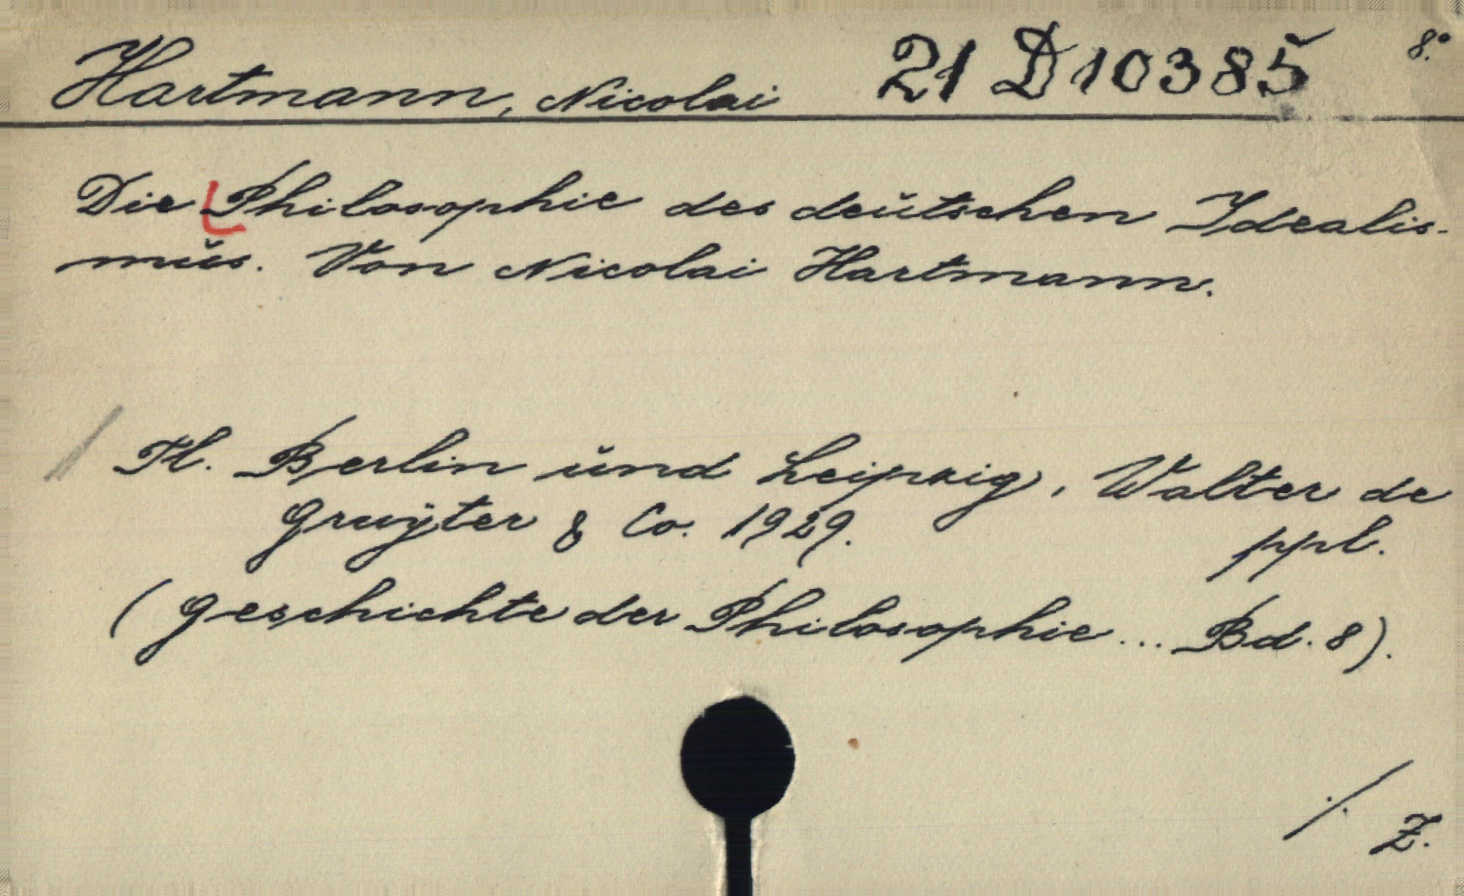 Hartmann, Nicolai 21 D 10385 8.°
Die Philosophie des deutschen Idealis-
mus. Von Nicolai Hartmann.
Tl. Berlin und Leipzig, Walter de
Gruyter & Co. 1929.
ppl.
(Geschichte der Philosophie... Bd. 8).
./. Z.